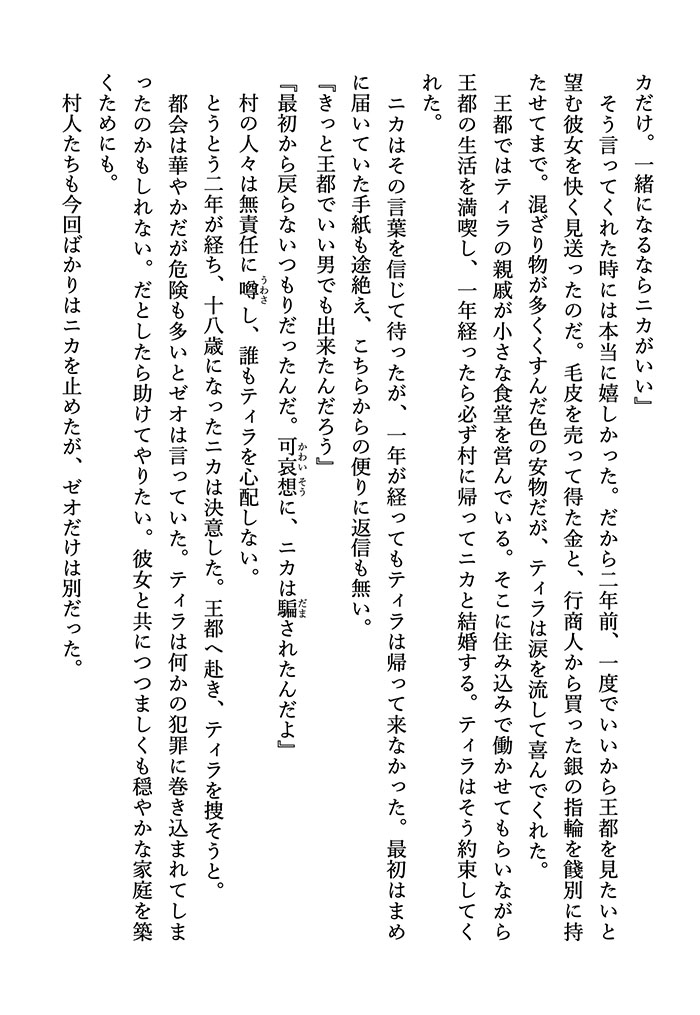 カだけ。一緒になるならニカがいい』
　そう言ってくれた時には本当に嬉しかった。だから二年前、一度でいいから王都を見たいと
望む彼女を快く見送ったのだ。毛皮を売って得た金と、行商人から買った銀の指輪を餞別に持
たせてまで。混ざり物が多くくすんだ色の安物だが、ティラは涙を流して喜んでくれた。
　王都ではティラの親戚が小さな食堂を営んでいる。そこに住み込みで働かせてもらいながら
王都の生活を満喫し、一年経ったら必ず村に帰ってニカと結婚する。ティラはそう約束してく
れた。
　ニカはその言葉を信じて待ったが、一年が経ってもティラは帰って来なかった。最初はまめ
に届いていた手紙も途絶え、こちらからの便りに返信も無い。
『きっと王都でいい男でも出来たんだろう』
『最初から戻らないつもりだったんだ。可哀想に、ニカは騙されたんだよ』
　村の人々は無責任に噂し、誰もティラを心配しない。
　とうとう二年が経ち、十八歳になったニカは決意した。王都へ赴き、ティラを捜そうと。
　都会は華やかだが危険も多いとゼオは言っていた。ティラは何かの犯罪に巻き込まれてしま
ったのかもしれない。だとしたら助けてやりたい。彼女と共につつましくも穏やかな家庭を築
くためにも。
　村人たちも今回ばかりはニカを止めたが、ゼオだけは別だった。